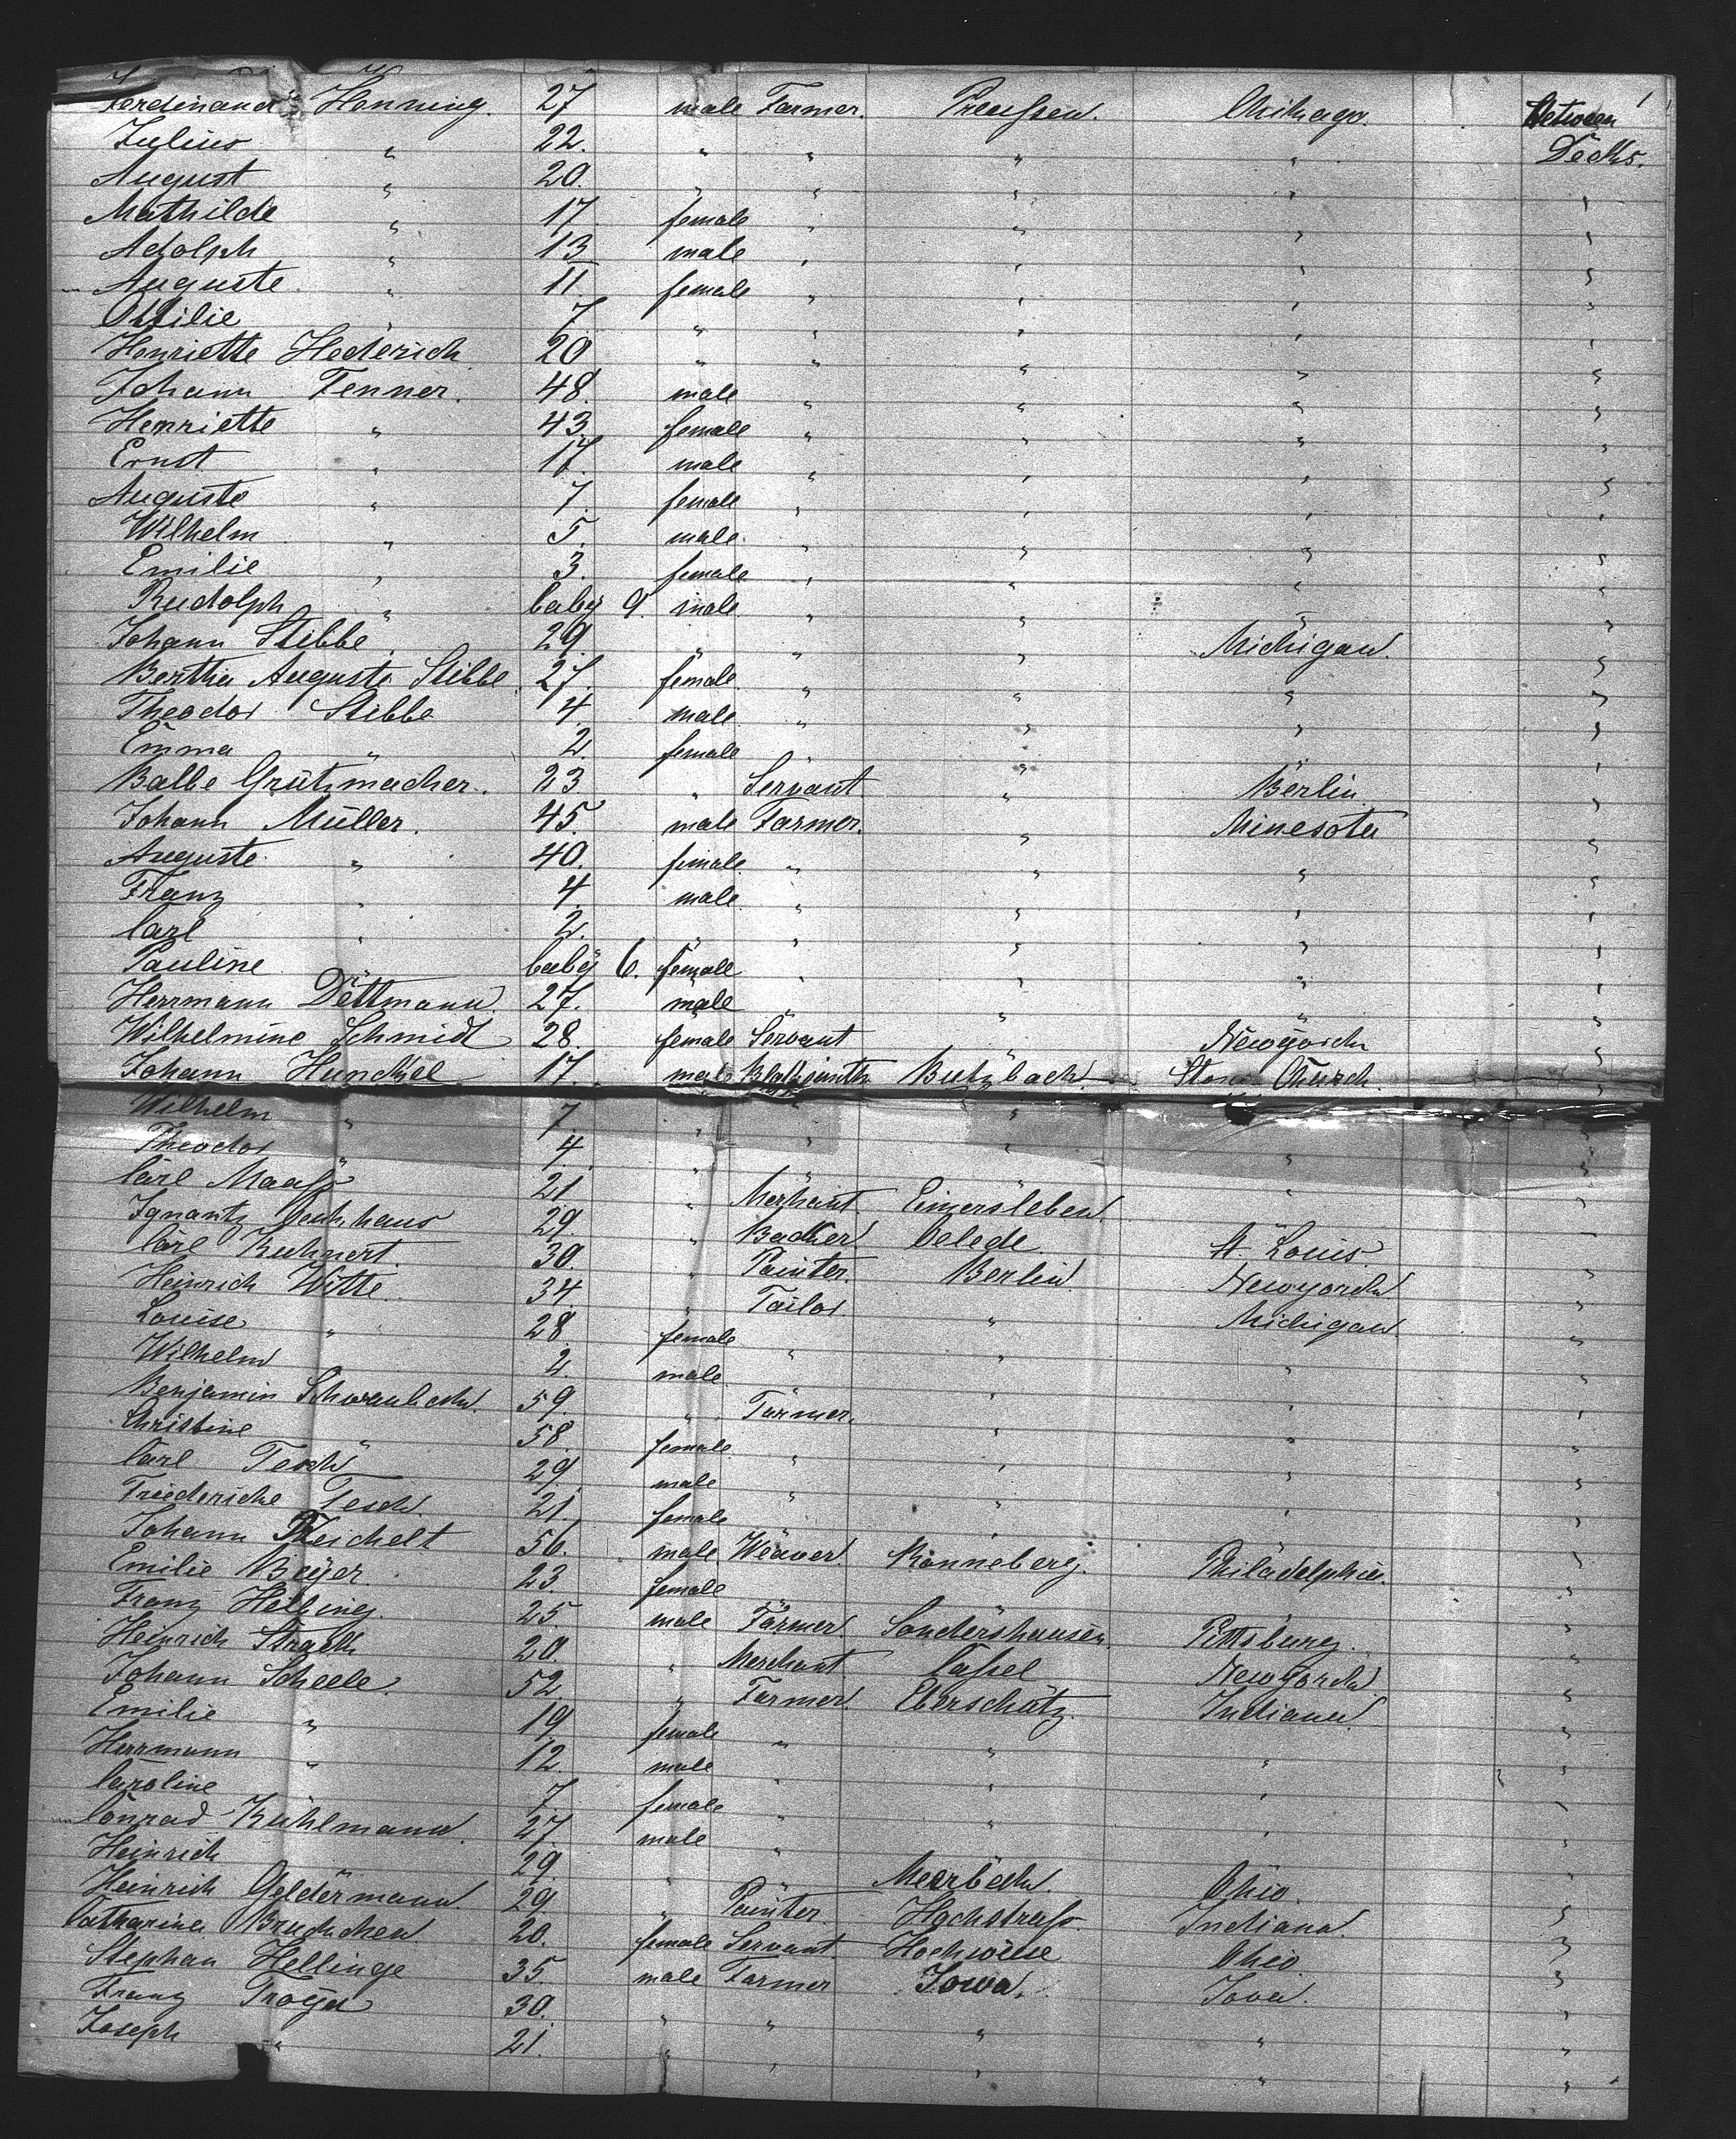 Ferdinand Henning. 27 male Farmer. Preussen. Chikago. Between
Julius " 22. " " " " Decks.
August " 20. " " " " "
Mathilde " 17 female " " " "
Adolph " 13 male " " " "
Auguste " 11. female " " " "
Ottilie " 7 " " " " "
Henriette Hederich 20 " " " " "
Johann Tenner. 48. male " " " "
Henriette " 43 female " " " "
Ernst " 17. male " " " "
Auguste " 7. female " " " "
Wilhelm " 5. male. " " " "
Emilie " 3. female " " " "
Rudolph " baby 9. male " " " "
Johann Stibbe 29. " " " Michigan. "
Bertha Auguste Stibbe 27 female " " " "
Theodor Stibbe 4. male " " " "
Emma " 2. female " "
Balbe Grützmacher. 23 " Servant. " Berlin "
Johann Müller. 45. male Farmer. " Minesota "
Auguste " 40. female " " " "
Franz " 4. male " " " "
Carl " 2. " " " " "
Pauline " baby 6. female " " " "
Herrmann Dettmann 27. male " " " "
Wilhelmine Schmidt 28. female Servant Newyorck "
Johann Hunckel 17. male Blaksmith Butzbach Church. "
Wilhelm " 7. " " " "
Theodor " 4. " " " " "
Carl Maass 21 " Merhant Eimersleben " "
Ignantz 29. " Backer Oelede St. Louis "
Carl Kuhnert. 30. " Painter. Berlin Newyorck "
Heinrich Witte 34 " Tailor " Michigan "
Louise " 28 female " " " "
Wilhelm 2. male " " "
Benjamin 59. " Farmer. " " "
Christine " 58 female " " " "
Carl Tesch 29. male " " " "
Friedericke Tesch 21. female " "
Johann Reichelt 56. male Weaver Ronneberg. Philadelphia. "
Emilie Beyer. 23. female "
Franz Helbing. 25 male Farmer Sondershausen. Pittsburg. "
Heinrich 20. " Merchant. Cassel Newyorck "
Johann Scheele. 52 " Farmer Eberschütz. Indiana "
Emilie " 19 female " " " "
Herrmann " 12. male " " " "
Caroline 7 female " " " "
Conrad Kühlmann. 27 male " "
Heinrich 29. " " Meerbeck. Ohio. "
Heinrich Geldermann. 29. " Painter. Hochstrass. Indiana. "
Catharina 20. female Servant Hochweise Ohio "
Stephan Hellinge 35. male Farmer Iowa. Iova. "
Franz 30. " " " " "
Joseph " 21. " " " " "